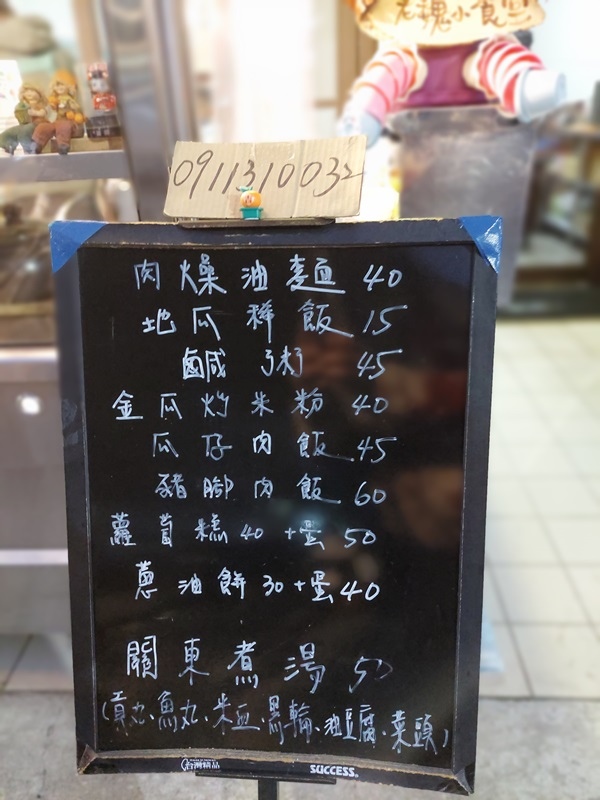 老魂小食堂
0911310032
肉燥油麵 40
地瓜稀飯 15
鹹粥 45
金瓜炒米粉 40
瓜仔肉飯 45
豬腳肉飯 60
蘿蔔糕 40 +蛋 50
蔥油餅 30 +蛋 40
關東煮湯 50
(貢丸、魚丸、米血、黑輪、油豆腐、菜頭)
台灣精品
SUCCESS